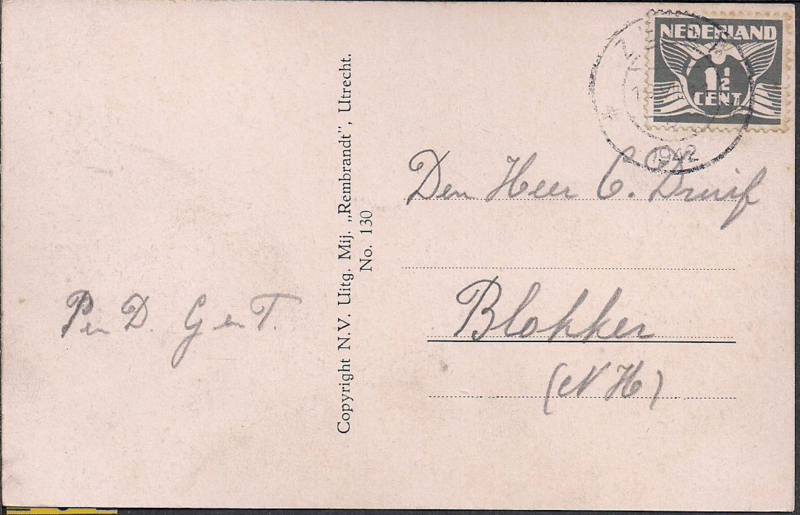 NEDERLAND
1½
CENT
1942
Den Heer C. Druif
Blokker
(N H)
P en D. G en T.
Copyright N.V. Uitg. Mij. „Rembrandt", Utrecht.
No. 130